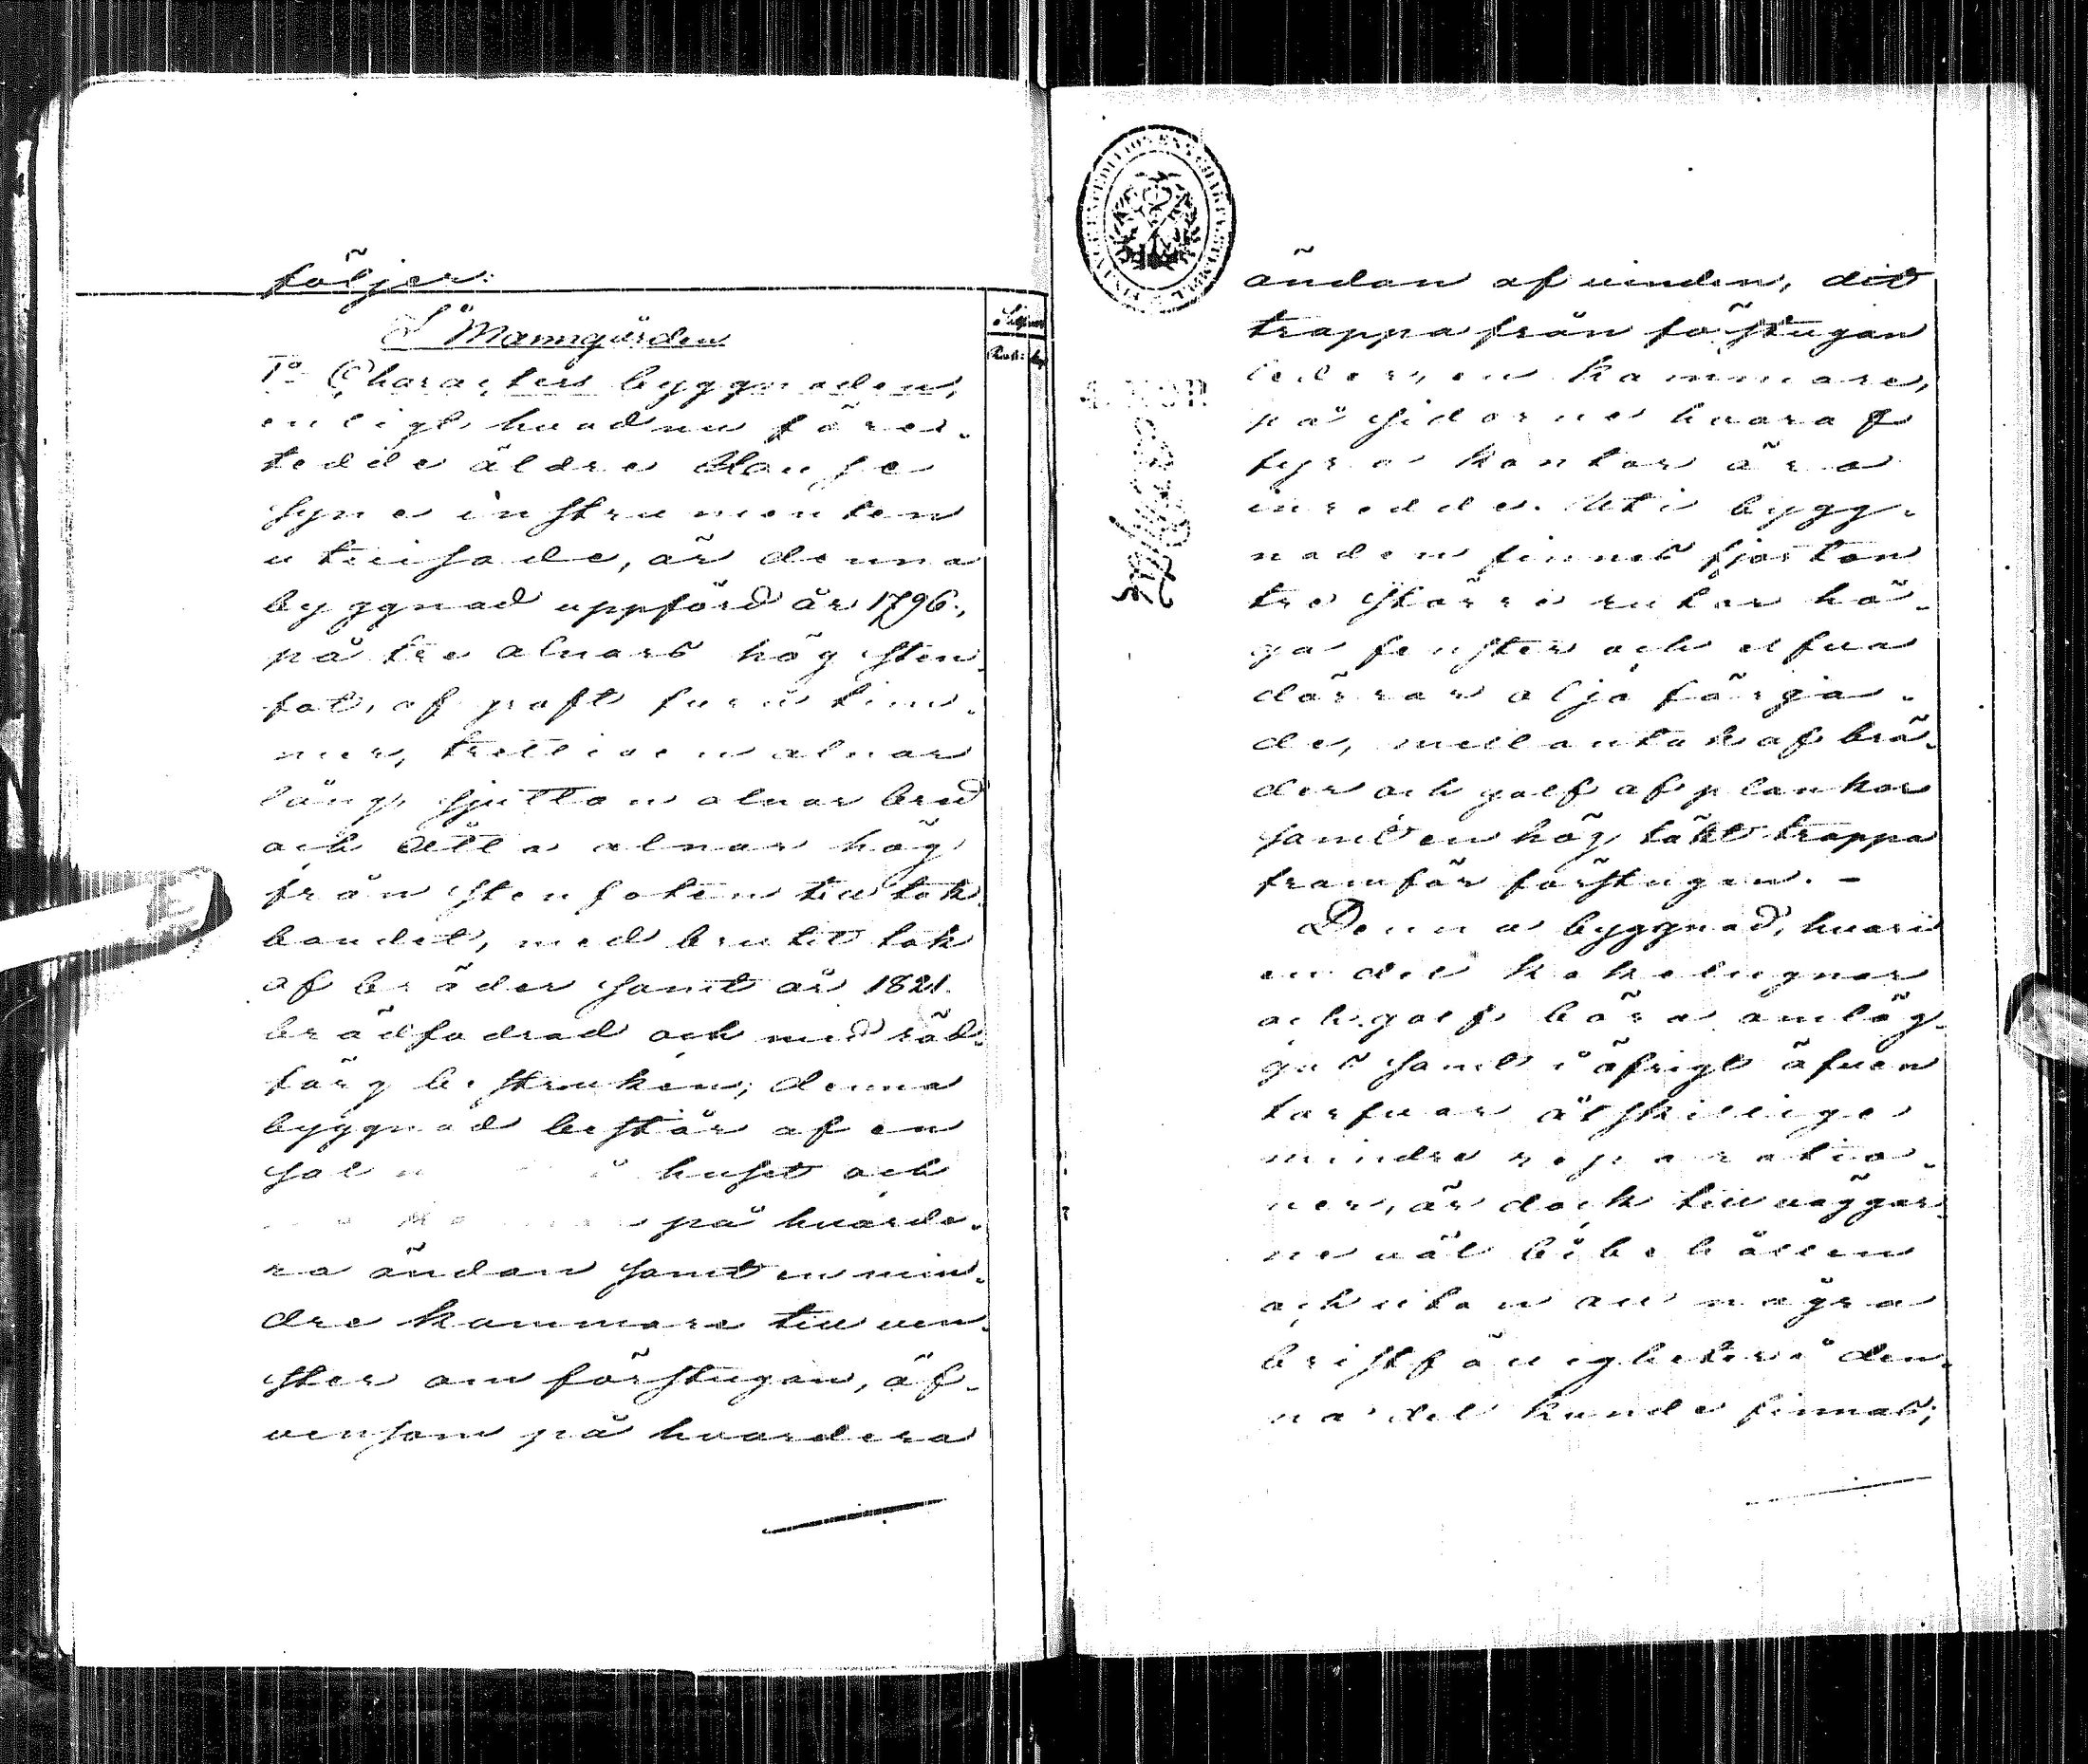 följer:
I Manngården
1o Characters byggnaden,
enligt hvad nu före-
tedde äldre Hause
syne instrumenten
utvisade, är denna
byggnad uppförd år 1796,
på tre alnars hög sten-
fot, af groft furu tim-
mer, trettio en alnar
lång, sjutton alnar bred
och åtta alnar hög
från stenfoten till tak
bandet, med brutit tak
af bräder samt år 1821
brädfodrad och med röd-
färg bestruken; denna
byggnad består af en
sal huset och
på hvarde-
ra ändan samt en min-
dre kammare till ven-
ster om förstugan, äf-
vensom på hvardera
Silfver
Rub: kop
ändan af vinden, dit
trappa från förstugan
leder, en kammare,
på sidorne hvaraf
fyra kontor äro
inredde. Uti bygg-
naden finnes fjorton
tre större rutor hö-
ga fenster och elfva
dörrar olje färga-
de, mellantak af brä-
der och golf af plankor
samt en hög täkt trappa
framför förstugan. -
Denna byggnad, hvari
en del kakelugnar
och golf böra omläg-
gas samt i öfrigt äfven
tarfvar åtskillige
mindre reparatio-
ner, är dock till väggar-
ne väl bibehållen
och utan att några
bristfälligheter i den-
na del kunde finnas;